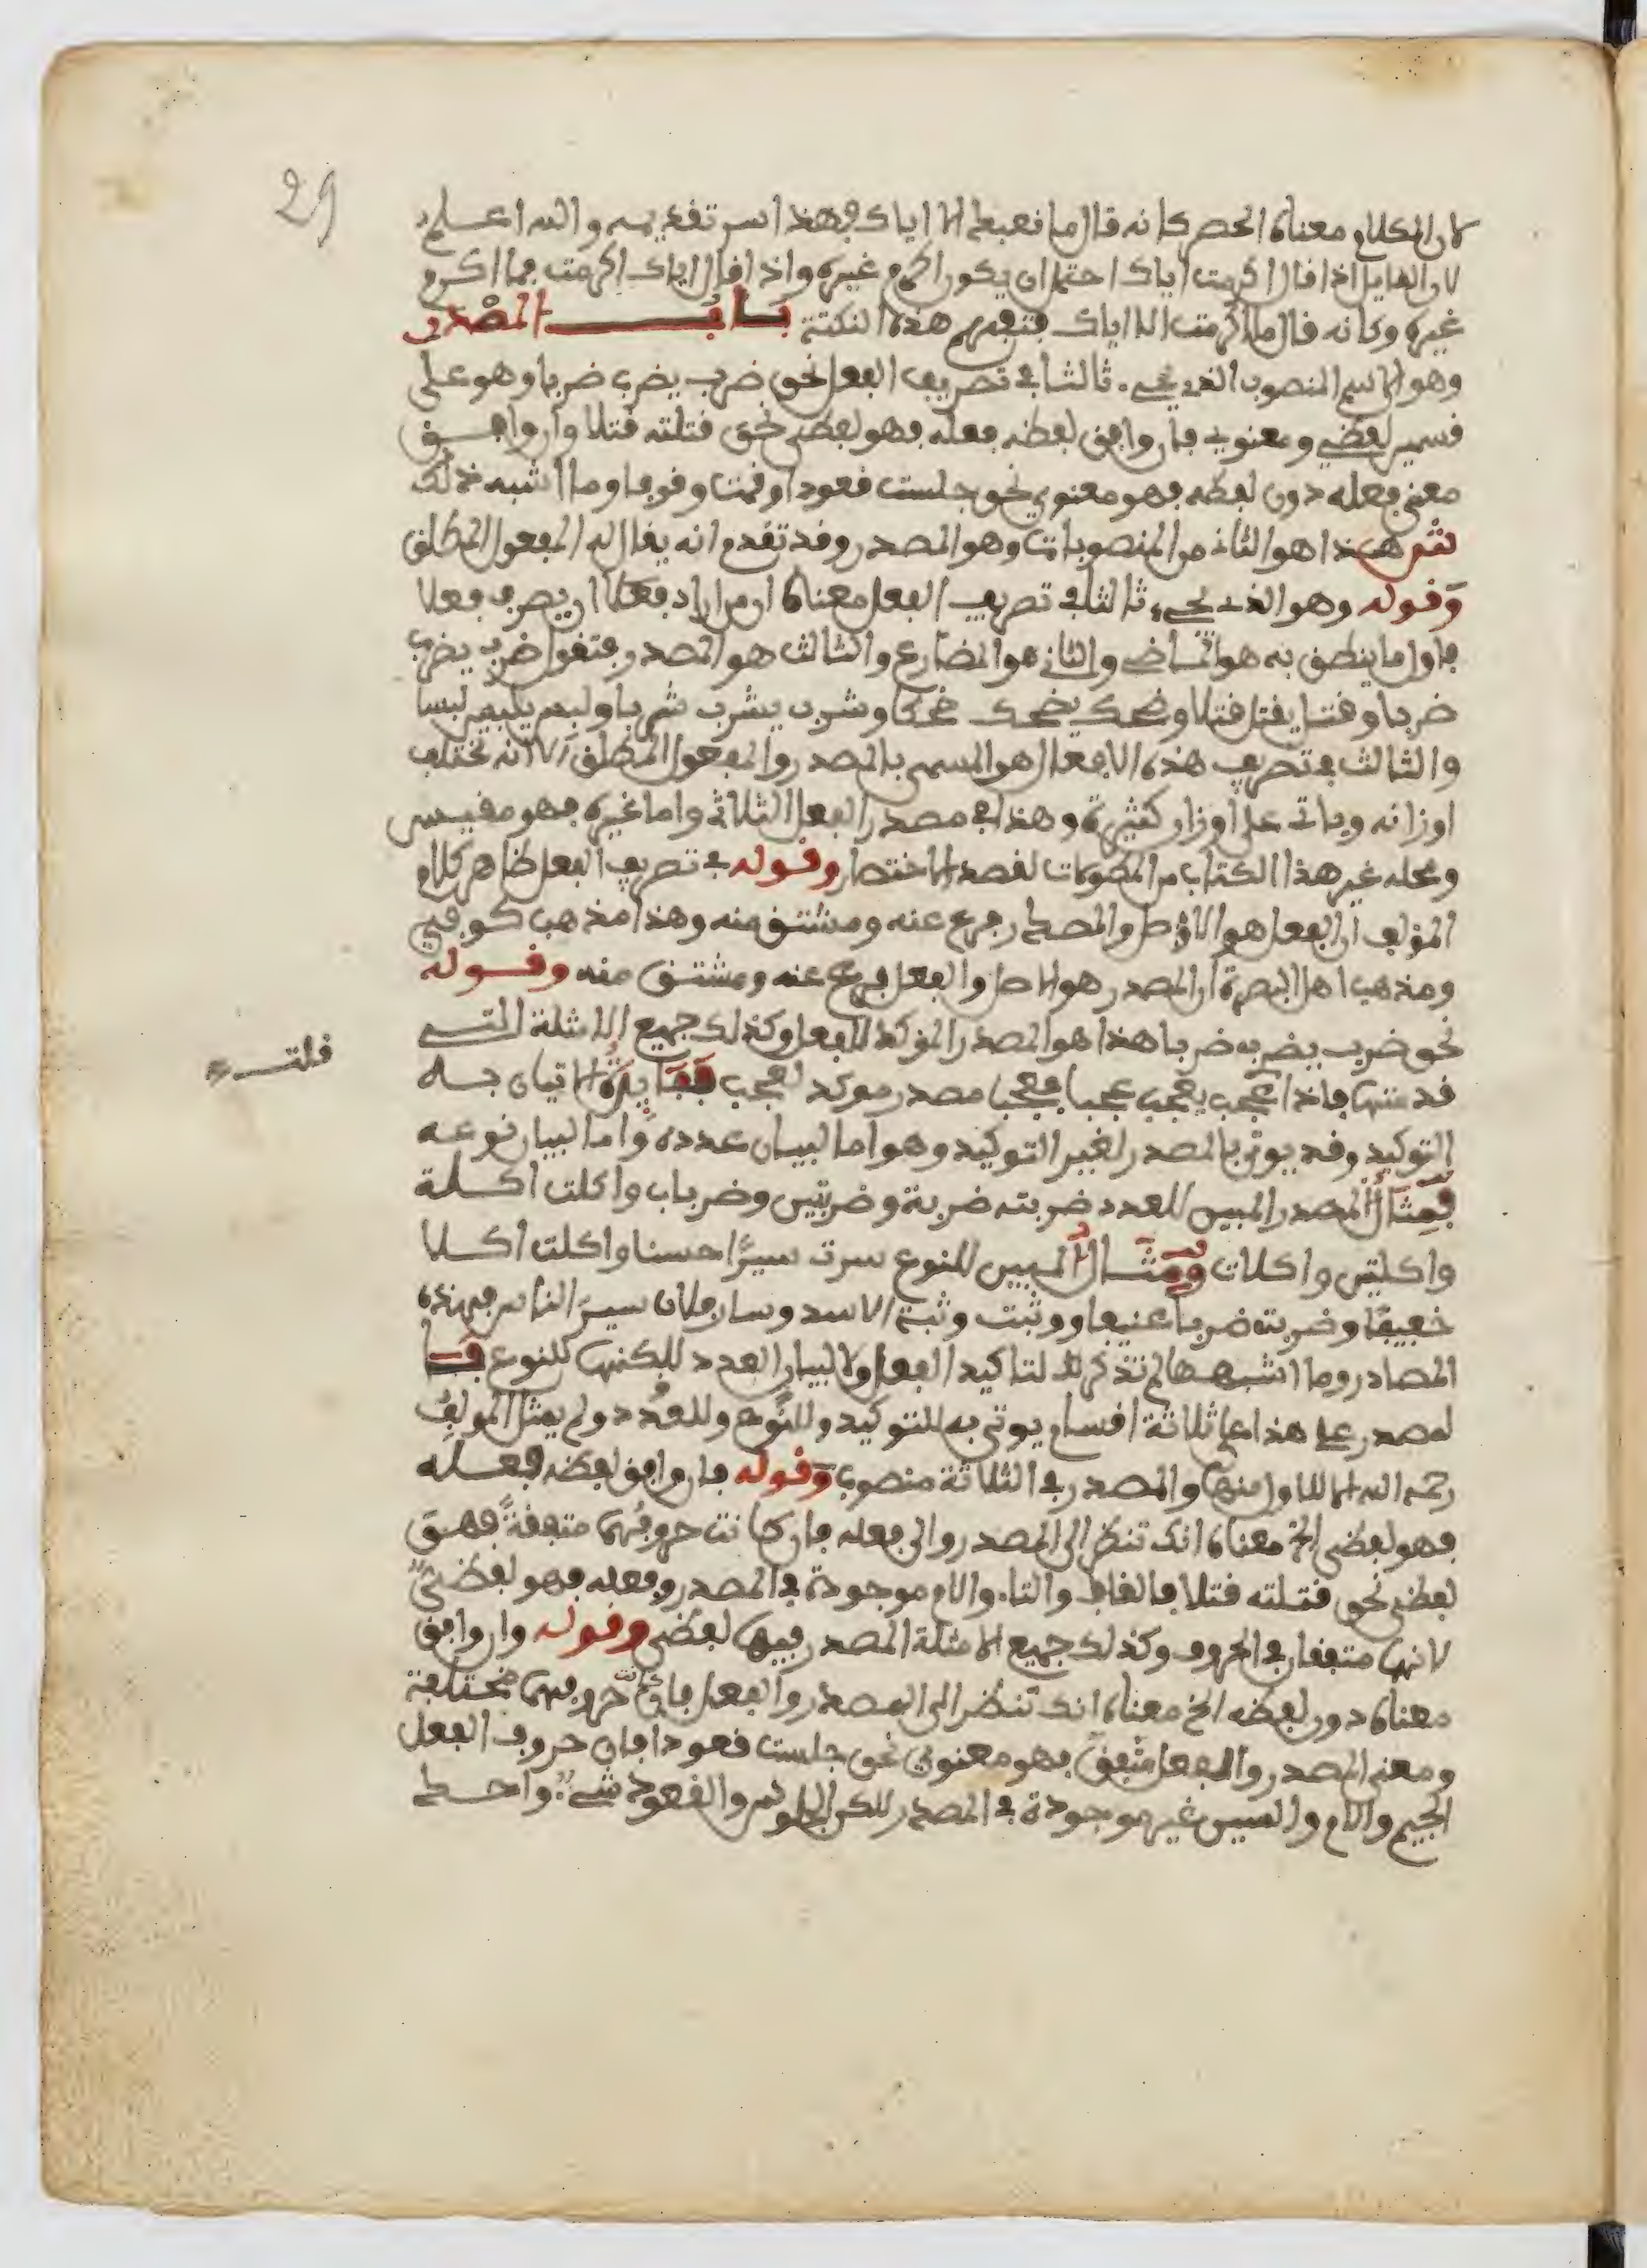 29
لان الكلام معناه الحصر كانه قال ما نعبد الا اياك فهذا سر تقديمه والله اعلم
لان القايل اذا قال اكرمت اياك احتمل ان يكون اكرم غيره واذا قال اياك اكرمت فما اكرم
غيره وكانه قال ما اكرمت الا اياك فتفهم هذه النكتة باب المصدر
وهو الاسم المنصوب الذي يجيء ثالثا في تصريف الفعل نحو ضرب يضرب ضربا وهو على
قسمين لفظي ومعنوي فان وافق لفظه فعله فهو لفظي نحو قتلته قتلا وان وافق
معنى فعله دون لفظه فهو معنوي نحو جلست قعودا وقمت وقوفا وما اشبه ذلك
ش هذا هو الثاني من المنصوبات وهو المصدر وقد تقدم انه يقال له المفعول المطلق
وقوله وهو الذي يجيء ثالثا في تصريف الفعل معناه ان من اراد فعلا ان يصرف فعلا
فاول ما ينطق به هو الماضي والثاني هو المضارع والثالث هو المصدر فتقول ضرب يضرب
ضربا وقتل يقتل قتلا وضحك يضحك ضحكا وشرب يشرب شربا ولبس يلبس لبسا
والثالث في تصريف هذه الافعال هو المسمى بالمصدر والمفعول المطلق لانه تختلف
اوزانه وياتي على اوزان كثيرة وهذا في مصدر الفعل الثلاثي واما غيره فهو مقيس
ومحله غير هذا الكتاب من المطولات لقصد الاختصار وقوله في تصريف الفعل ظاهر كلام
المؤلف ان الفعل هو الاصل والمصدر فرع عنه ومشتق منه وهذا مذهب كوفي
ومذهب اهل البصرة ان المصدر هو الاصل والفعل فرع عنه ومشتق منه وقوله
نحو ضرب يضرب ضربا هذا هو المصدر المؤكد للفعل وكذلك جميع الامثلة التي
قلت
قدمتها فاذا عجب يعجب عجبا فعجبا مصدر موكد لعجب ففايدة الاتيان به
التوكيد وقد يوتى بالمصدر لغير التوكيد وهو اما لبيان عدده واما لبيان نوعه
فمثال المصدر المبين للعدد ضربته ضربة وضربتين وضربات واكلت اكلة
واكلتين واكلات ومثال المبين للنوع سرت سيرا حسنا واكلت اكلا
خفيفا وضربته ضربا عنيفا ووثبت وثبة الاسد وسار فلان سير الناس فهذه
المصادر وما اشبهها لم تذكر لتاكيد الفعل ولا لبيان العدد لكنها للنوع فا
لمصدر على هذا على ثلاثة اقسام يوتى به للتوكيد وللنوع وللعدد ولم يمثل المولف
رحمه الله الا للاول منها والمصدر في الثلاثة منصوب وقوله فان وافق لفظه فعله
فهو لفظي الخ معناه انك تنظر الى المصدر والى فعله فان كانت حروفهما متفقة فهو
لفظي نحو قتلته قتلا فالقاف والتاء والام موجودة في المصدر وفعله فهو لفظي
لانهما متفقان في الحروف وكذلك جميع الامثلة المصدر فيها لفظي وقوله وان وافق
معناه دون لفظه الخ معناه انك تنظر الى المصدر والفعل فان كانت حروفهما مختلفة
ومعنى المصدر والفعل متفق فهو معنوي نحو جلست قعودا فان حروف الفعل
الجيم والام والسين غير موجودة في المصدر لكن الجلوس والقعود شيء واحد